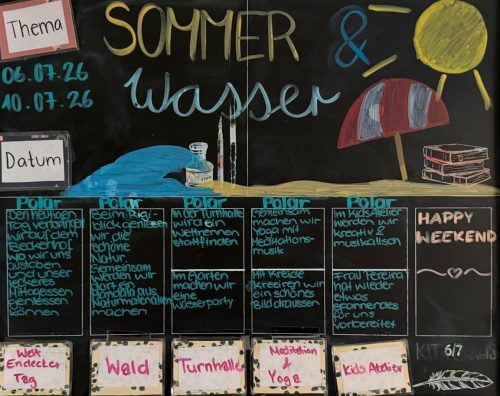 Thema
SOMMER &
Wasser
06.07.26
10.07.26
Datum
Polar
Den heutigen
Tag verbringen
wir auf dem
Beckenhof
wo wir uns
austoben
und unser
leckeres
Mittagessen
geniessen
können
Polar
Beim Rigi-
blick geniessen
wir die
schöne
Natur.
Gemeinsam
werden wir
dort ein
Mandala aus
Naturmaterialien
machen
Polar
In der Turnhalle
wird ein
Wettrennen
stattfinden
Im Garten
machen wir
eine
Wasserparty
Polar
Gemeinsam
machen wir
Yoga mit
Meditations-
musik
Mit Kreide
kreeiren wir
ein schönes
Bild draussen
Polar
Im Kids Atelier
werden wir
kreativ &
musikalisch
Frau Pereira
hat wieder
etwas
spannendes
für uns
vorbereitet
HAPPY
WEEKEND
Welt
Endecker
Tag
Wald
Turnhalle
Meditation
&
Yoga
Kids Atelier
KIT 6/7